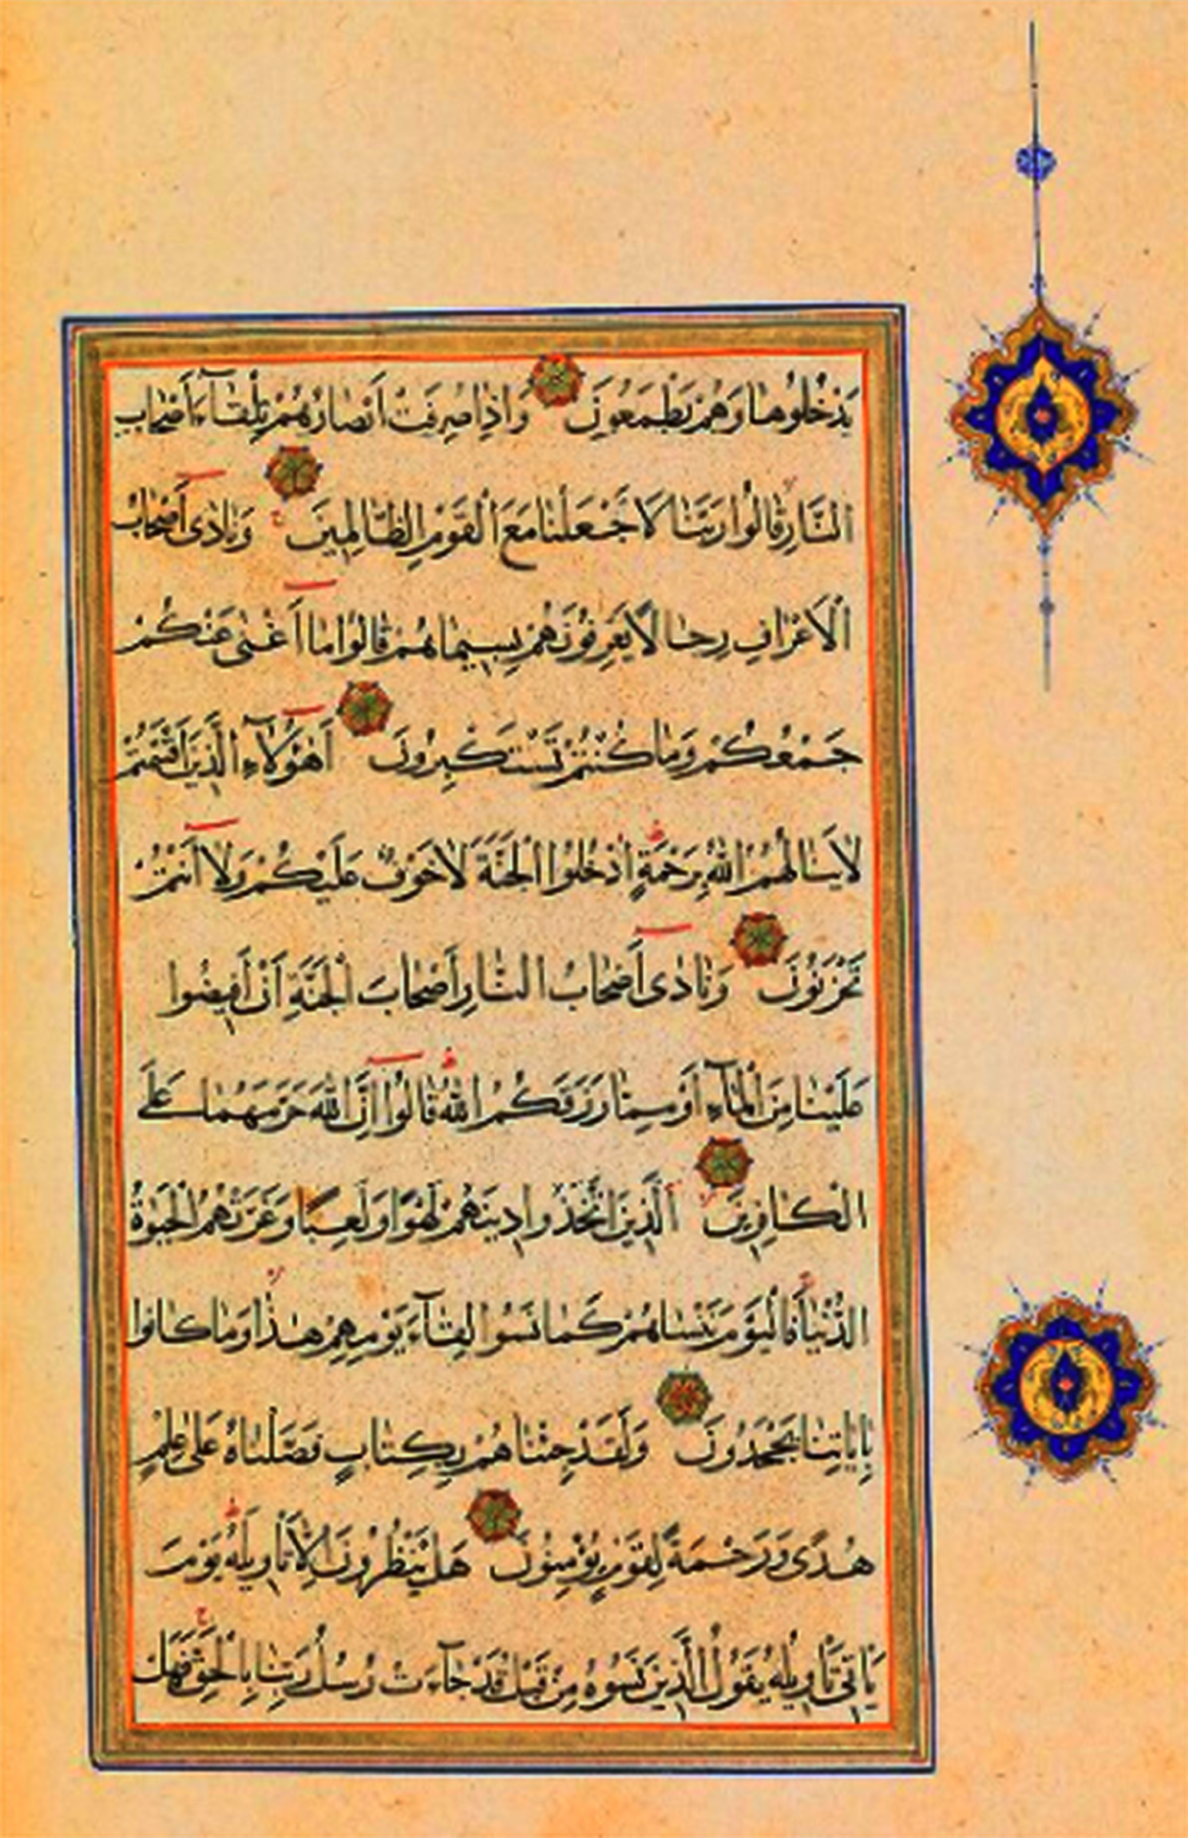 يَدْخُلُوهَا وَهُمْ يَطْمَعُونَ وَاِذَا صُرِفَتْ اَبْصَارُهُمْ تِلْقَآءَ اَصْحَابِ
النَّارِ قَالُوا رَبَّنَا لَا تَجْعَلْنَا مَعَ الْقَوْمِ الظَّالِمِينَ وَنَادٰى اَصْحَابُ
الْاَعْرَافِ رِجَالًا يَعْرِفُونَهُمْ بِسِيمَاهُمْ قَالُوا مَا اَغْنٰى عَنْكُمْ
جَمْعُكُمْ وَمَا كُنْتُمْ تَسْتَكْبِرُونَ اَهٰؤُلَآءِ الَّذِينَ اَقْسَمْتُمْ
لَا يَنَالُهُمُ اللّٰهُ بِرَحْمَةٍ اُدْخُلُوا الْجَنَّةَ لَا خَوْفٌ عَلَيْكُمْ وَلَا اَنْتُمْ
تَحْزَنُونَ وَنَادٰى اَصْحَابُ النَّارِ اَصْحَابَ الْجَنَّةِ اَنْ اَفِيضُوا
عَلَيْنَا مِنَ الْمَآءِ اَوْ مِمَّا رَزَقَكُمُ اللّٰهُ قَالُوا اِنَّ اللّٰهَ حَرَّمَهُمَا عَلَى
الْكَافِرِينَ الَّذِينَ اتَّخَذُوا دِينَهُمْ لَهْوًا وَلَعِبًا وَغَرَّتْهُمُ الْحَيٰوةُ
الدُّنْيَا فَالْيَوْمَ نَنْسَاهُمْ كَمَا نَسُوا لِقَآءَ يَوْمِهِمْ هٰذَا وَمَا كَانُوا
بِاٰيَاتِنَا يَجْحَدُونَ وَلَقَدْ جِئْنَاهُمْ بِكِتَابٍ فَصَّلْنَاهُ عَلٰى عِلْمٍ
هُدًى وَرَحْمَةً لِقَوْمٍ يُؤْمِنُونَ هَلْ يَنْظُرُونَ اِلَّا تَاْوِيلَهُ يَوْمَ
يَاْتِي تَاْوِيلُهُ يَقُولُ الَّذِينَ نَسُوهُ مِنْ قَبْلُ قَدْ جَآءَتْ رُسُلُ رَبِّنَا بِالْحَقِّ فَهَلْ